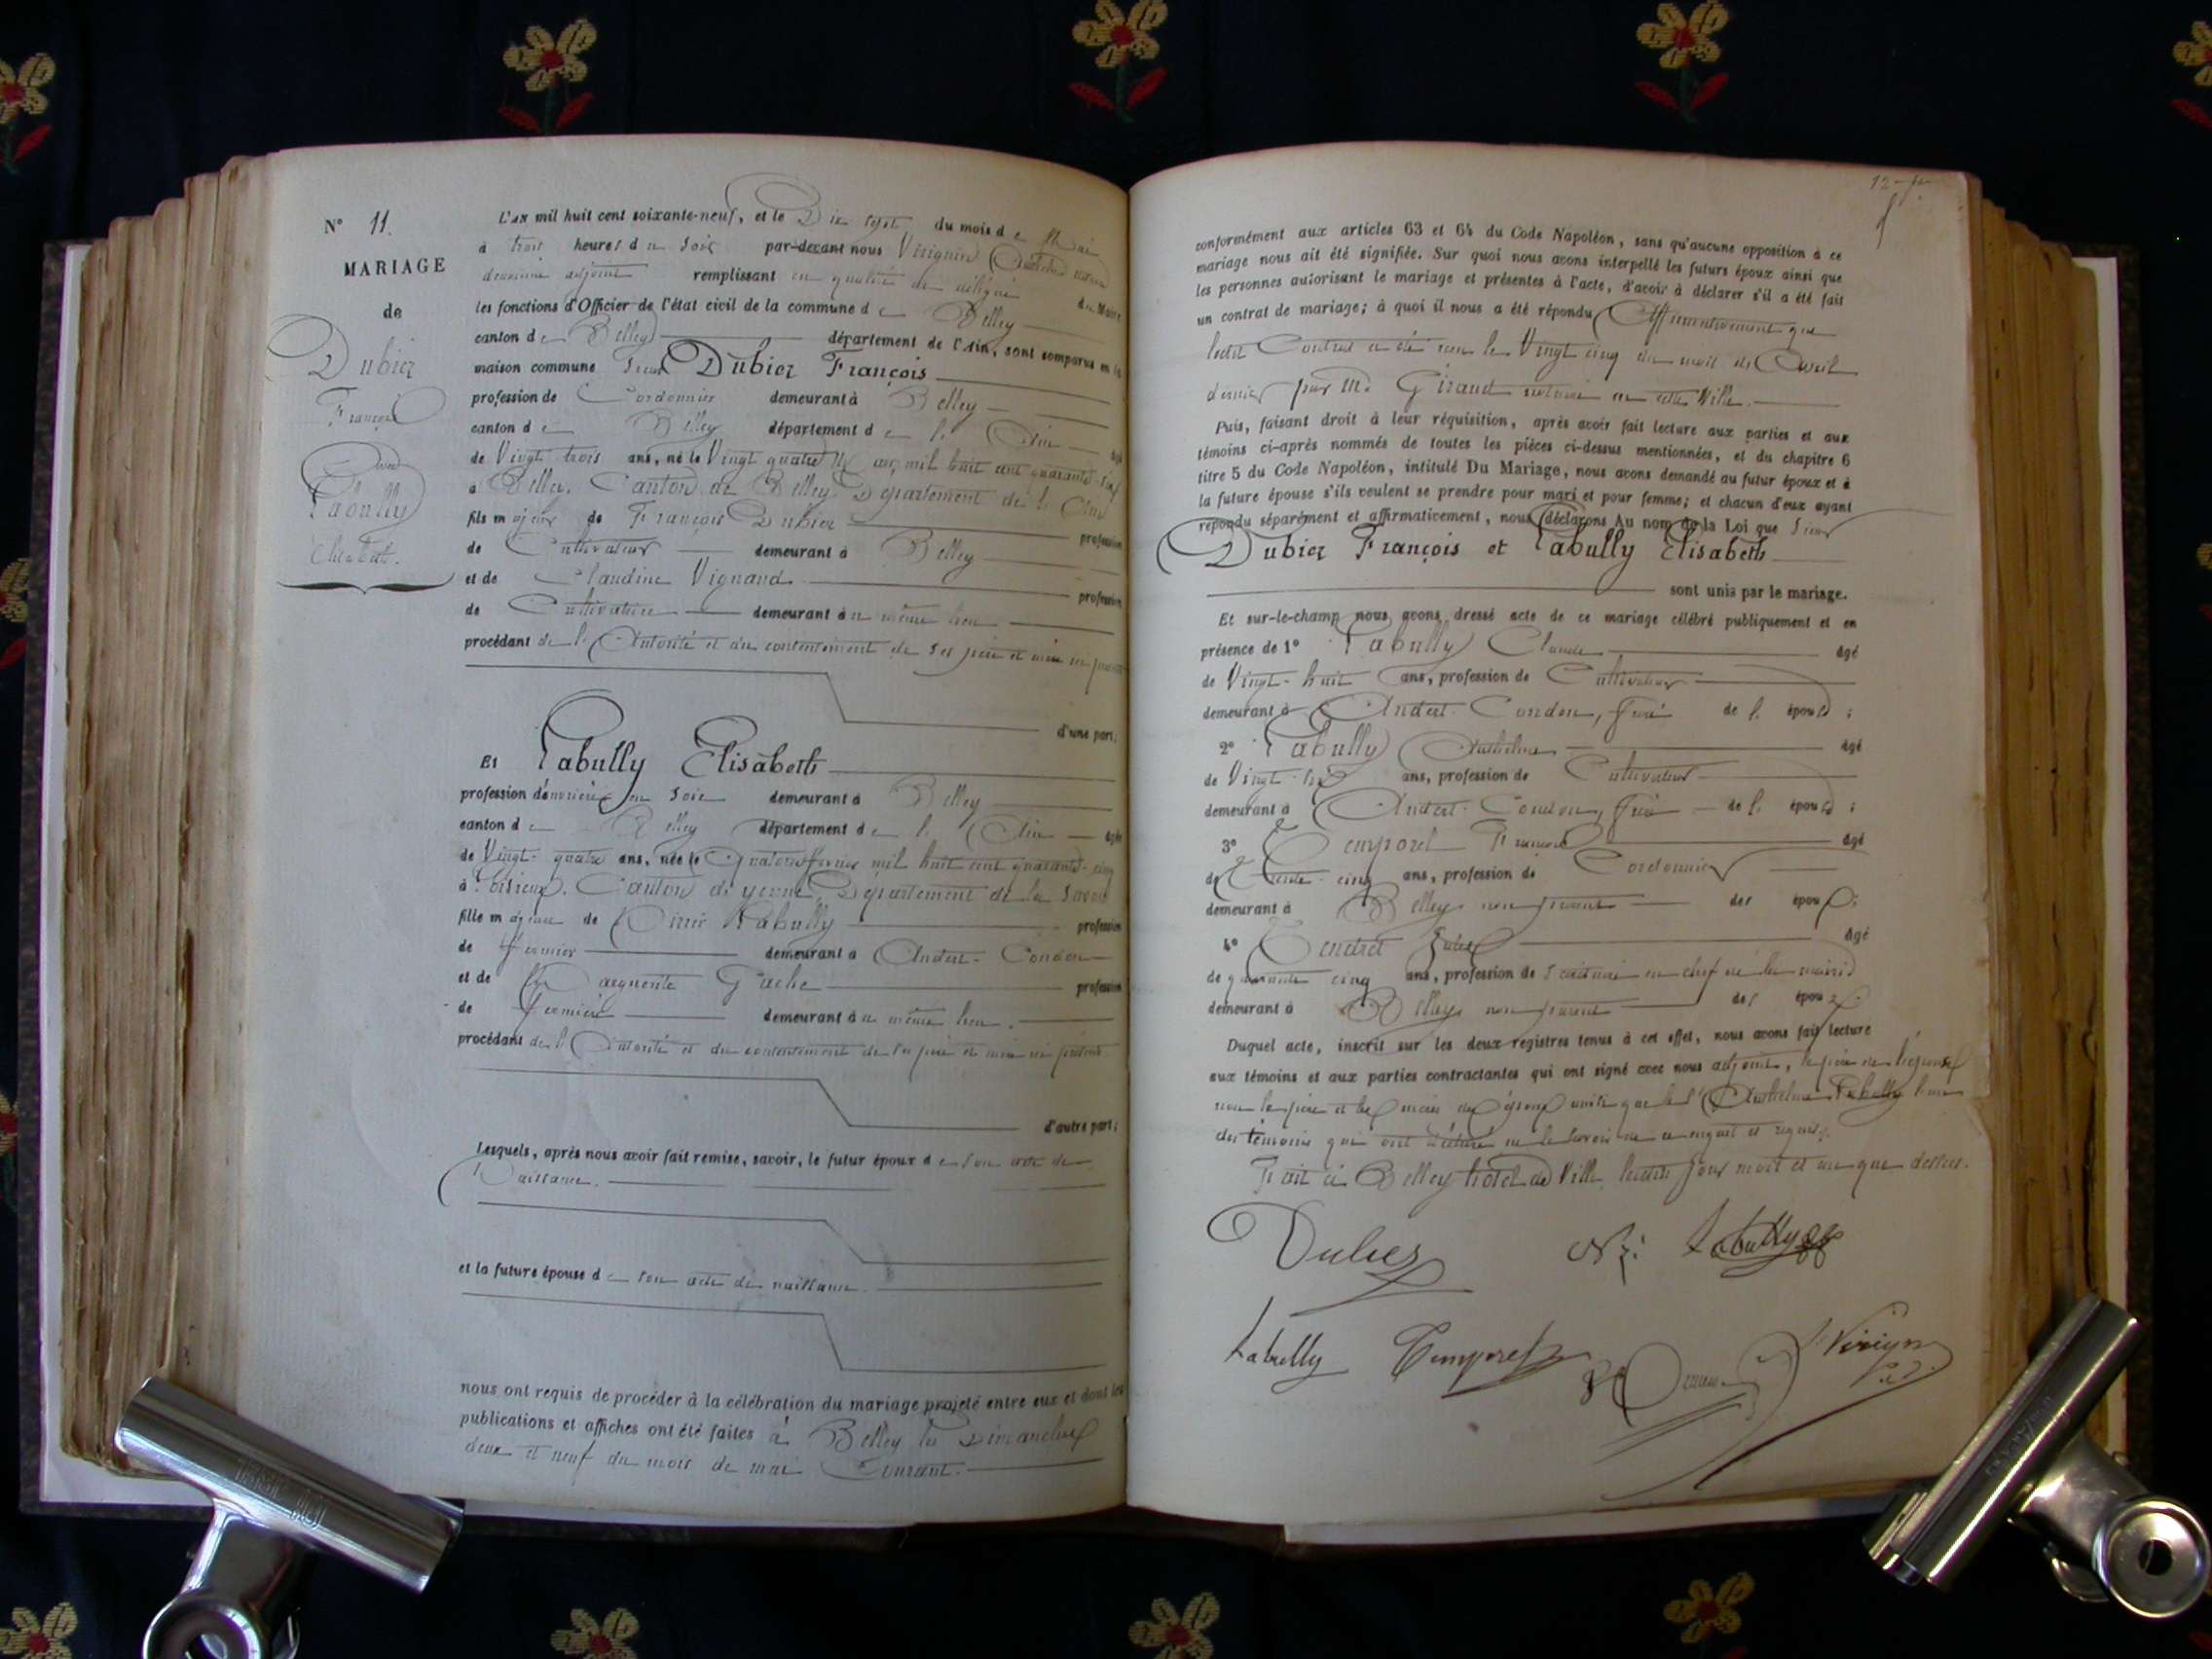 N° 11.
MARIAGE
de
Dubiez
François
avec
Rabully
Elisabeth.
L'an mil huit cent soixante-neuf, et le Dix sept du mois de Mai
à trois heures du soir par-devant nous Virignin
deuxième adjoint remplissant en qualité de délégué du Maire
les fonctions d'Officier de l'état civil de la commune de Belley
canton de Belley département de l'Ain, sont comparus en la
maison commune Dubiez François
profession de Cordonnier demeurant à Belley
canton de Belley département de l'Ain âgé
de Vingt trois ans, né le Vingt quatre mil huit cent quarante-
à Belley. Canton de Belley Département de l'Ain
fils majeur de François Dubiez profession
de Cultivateur demeurant à Belley
et de Claudine Vignand profession
de Cultivatrice demeurant au même lieu
procédant de l'Autorité et du consentement de ses père et mère ici présents
d'une part;
Et Rabully Elisabeth
profession d'ouvrière en soie demeurant à Belley
canton de Belley département de l'Ain âgée
de Vingt-quatre ans, née le quatorze février mil huit cent quarante-cinq
à Loisieux. Canton de yenne, Département de la Savoie
fille majeure de Rabully profession
de fermier demeurant à Andert-Condon
et de Marguerite Gache profession
de fermière demeurant au même lieu.
procédant de l'Autorité et du consentement de ses père et mère ici présents
d'autre part;
Lesquels, après nous avoir fait remise, savoir, le futur époux de son acte de
Naissance.
et la future épouse de son acte de naissance.
nous ont requis de procéder à la célébration du mariage projeté entre eux et dont les
publications et affiches ont été faites à Belley les Dimanches
deux et neuf du mois de mai Courant.
conformément aux articles 63 et 64 du Code Napoléon, sans qu'aucune opposition à ce
mariage nous ait été signifiée. Sur quoi nous avons interpellé les futurs époux ainsi que
les personnes autorisant le mariage et présentes à l'acte, d'avoir à déclarer s'il a été fait
un contrat de mariage; à quoi il nous a été répondu Affirmativement que
ledit Contrat a été reçu le Vingt cinq du mois d'Avril
dernier par Me Giraud notaire en cette Ville.
Puis, faisant droit à leur réquisition, après avoir fait lecture aux parties et aux
témoins ci-après nommés de toutes les pièces ci-dessus mentionnées, et du chapitre 6
titre 5 du Code Napoléon, intitulé Du Mariage, nous avons demandé au futur époux et à
la future épouse s'ils veulent se prendre pour mari et pour femme; et chacun d'eux ayant
répondu séparément et affirmativement, nous déclarons Au nom de la Loi que Sieur
Dubiez François et Rabully Elisabeth
sont unis par le mariage.
Et sur-le-champ nous avons dressé acte de ce mariage célébré publiquement et en
présence de 1° Rabully Claude âgé
de Vingt-huit ans, profession de Cultivateur
demeurant à Andert-Condon, frère de l'épouse;
2° Rabully Anthelme âgé
de Vingt- ans, profession de Cultivateur
demeurant à Andert-Condon, frère de l'épouse;
3° Temporel François âgé
de Trente-cinq ans, profession de Cordonnier
demeurant à Belley non parent des époux;
4° Tendret Jules âgé
de quarante cinq ans, profession de Secrétaire en chef de la mairie
demeurant à Belley non parent des époux.
Duquel acte, inscrit sur les deux registres tenus à cet effet, nous avons fait lecture
aux témoins et aux parties contractantes qui ont signé avec nous adjoint, le père de l'épouse
non le père et les mères des époux ainsi que le Sr Anthelme Rabully l'un
des témoins qui ont déclaré ne le savoir de ce enquis et requis.
Fait à Belley hôtel de Ville, lesdits jour mois et an que dessus.
Dubiez
Rabully
Rabully
Temporel
Virign